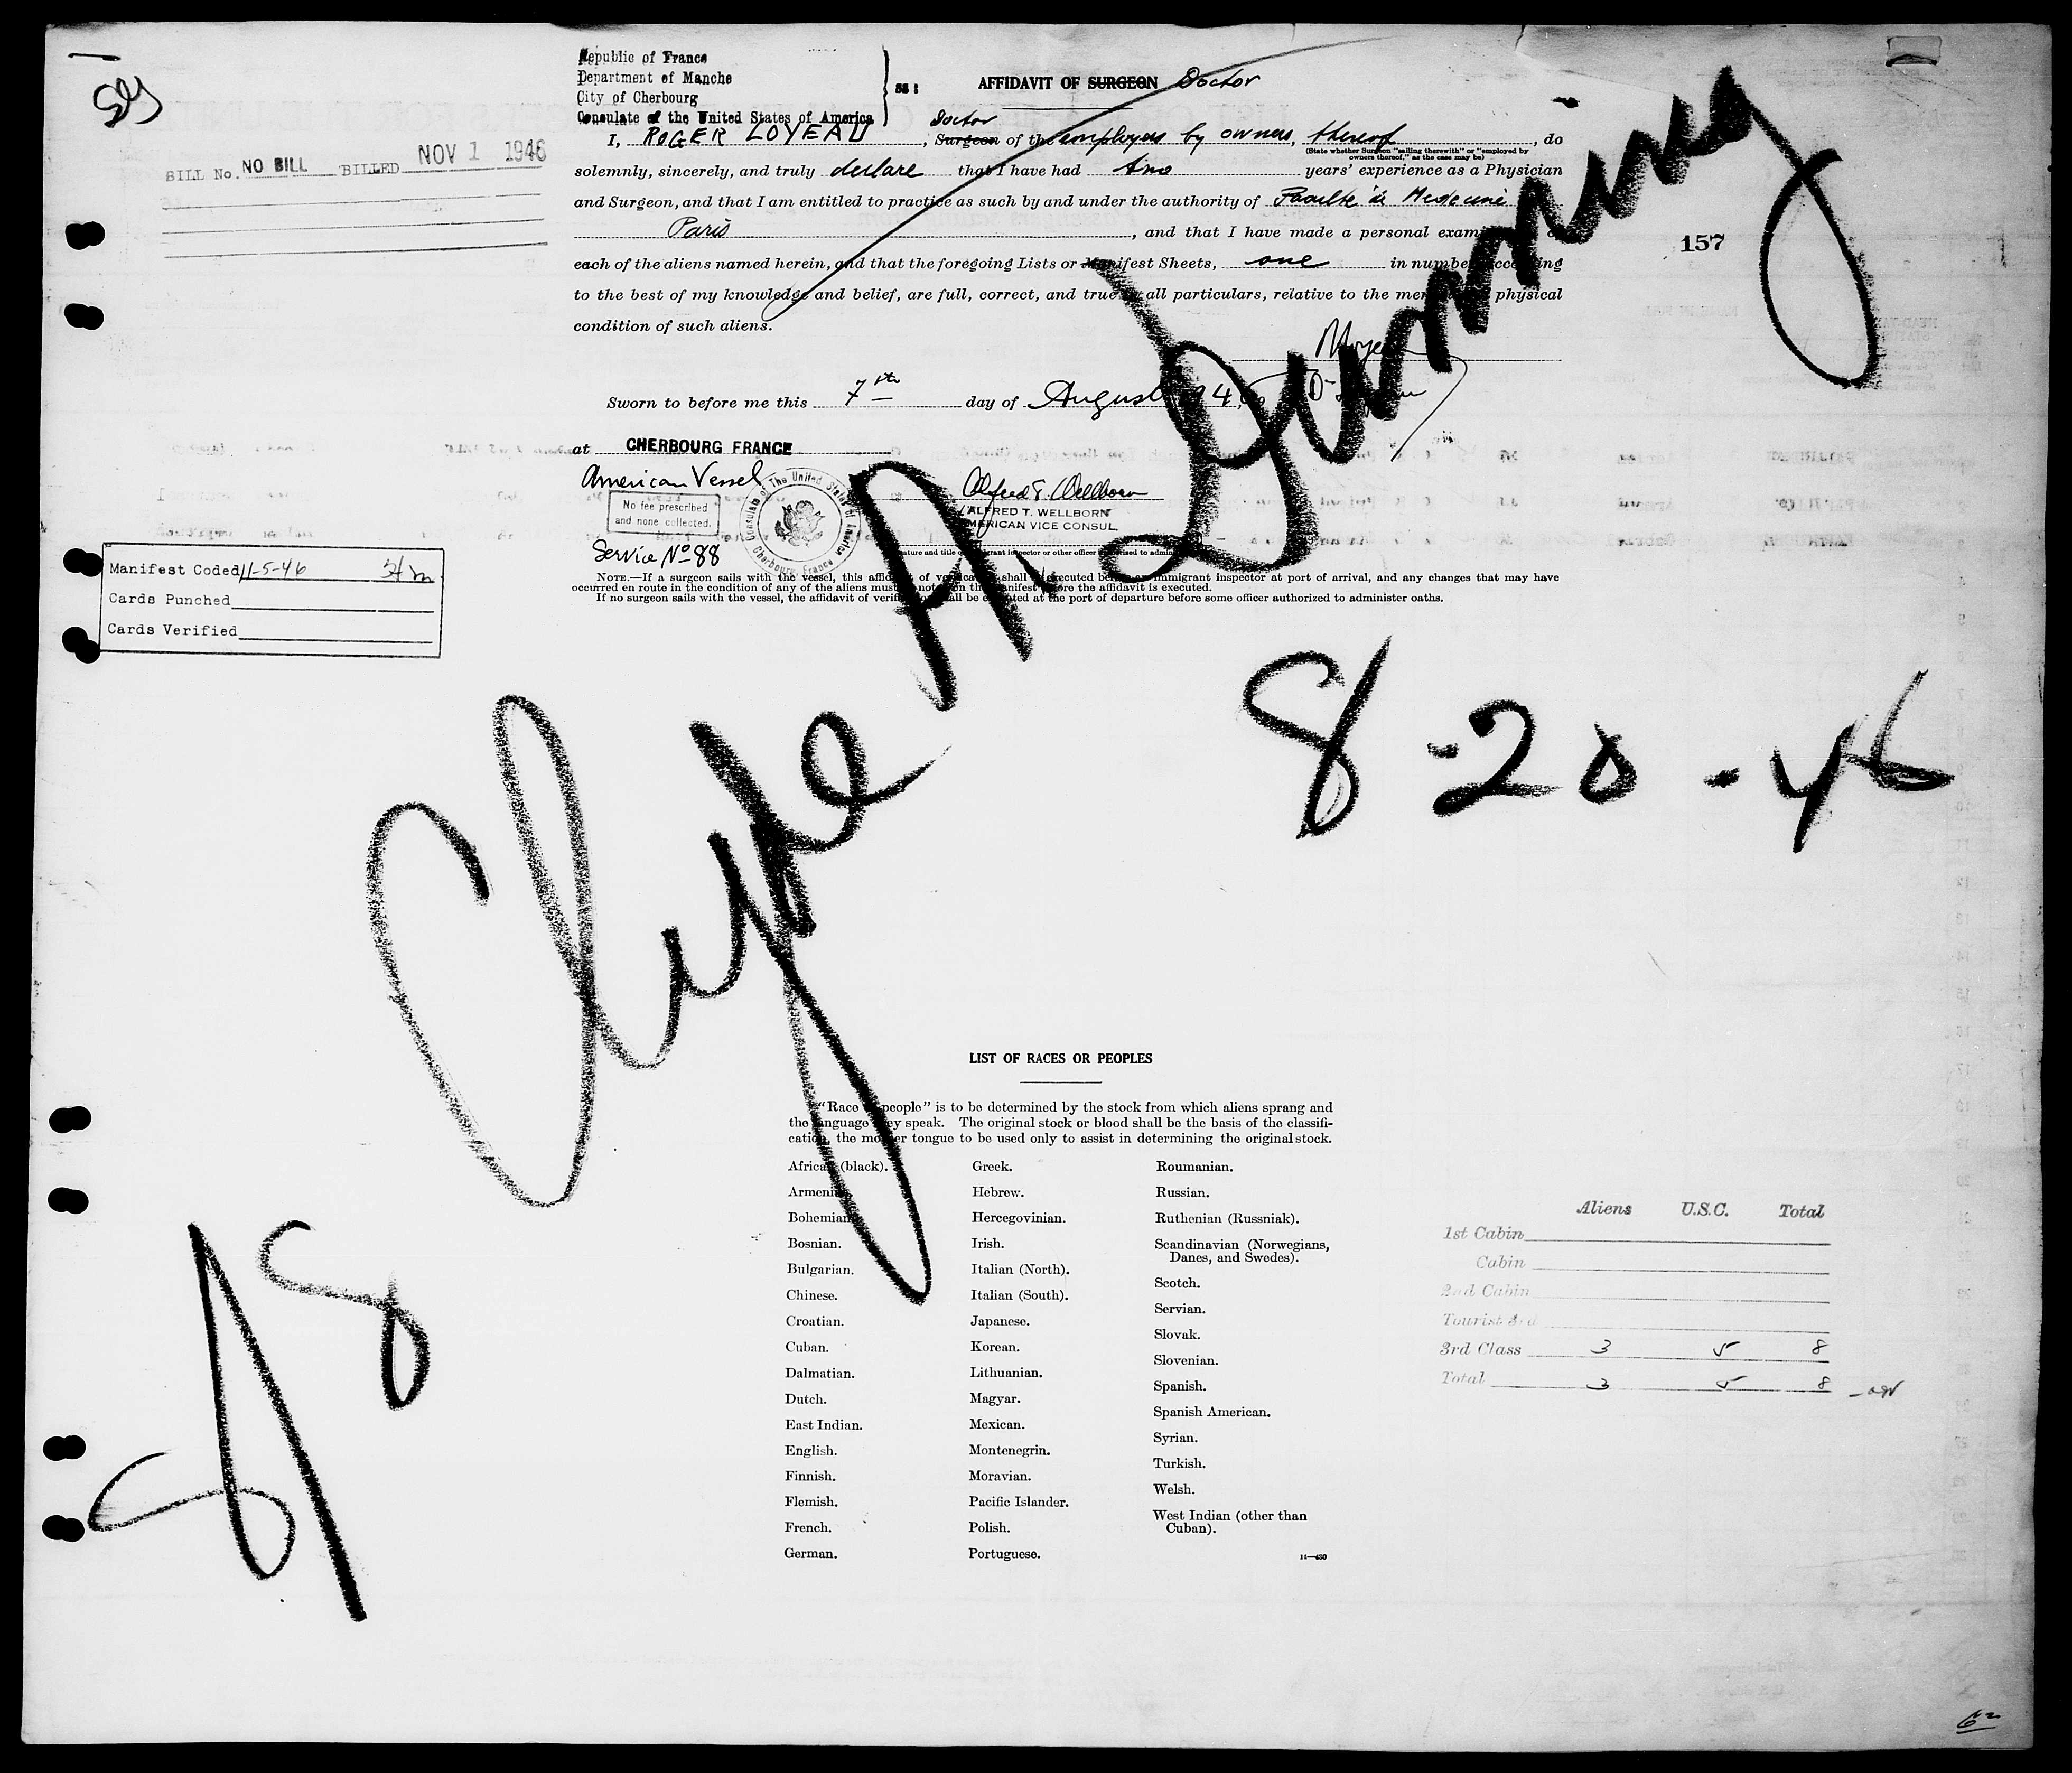 Republic of France
Department of Manche
City of Cherbourg
Consulate of the United States of America
ss:
AFFIDAVIT OF SURGEON Doctor
Doctor
I, ROGER LOYEAU, Surgeon of the employed by owners, thereof, do
(State whether Surgeon "sailing therewith" or "employed by
owners thereof," as the case may be)
solemnly, sincerely, and truly declare that I have had two years' experience as a Physician
and Surgeon, and that I am entitled to practice as such by and under the authority of Faculté de Medecine
Paris, and that I have made a personal exam
each of the aliens named herein, and that the foregoing Lists or Manifest Sheets, one in number according
to the best of my knowledge and belief, are full, correct, and true in all particulars, relative to the mental physical
condition of such aliens.
Sworn to before me this 7th day of August 1946
at CHERBOURG FRANCE
American Vessel
No fee prescribed
and none collected.
Service No 88
Consulate of The United States of America
Cherbourg, France
Alfred T. Wellborn
ALFRED T. WELLBORN
AMERICAN VICE CONSUL
NOTE.—If a surgeon sails with the vessel, this affidavit of verification shall be executed before an immigrant inspector at port of arrival, and any changes that may have
occurred en route in the condition of any of the aliens must be noted on the manifest before the affidavit is executed.
If no surgeon sails with the vessel, the affidavit of verification shall be executed at the port of departure before some officer authorized to administer oaths.
BILL No. NO BILL BILLED NOV 1 1946
157
Manifest Coded 11-5-46
Cards Punched
Cards Verified
Clyde A. Dunning
8-20-46
LIST OF RACES OR PEOPLES
"Race or people" is to be determined by the stock from which aliens sprang and
the language they speak. The original stock or blood shall be the basis of the classifi-
cation, the mother tongue to be used only to assist in determining the original stock.
African (black).
Armenian.
Bohemian.
Bosnian.
Bulgarian.
Chinese.
Croatian.
Cuban.
Dalmatian.
Dutch.
East Indian.
English.
Finnish.
Flemish.
French.
German.
Greek.
Hebrew.
Hercegovinian.
Irish.
Italian (North).
Italian (South).
Japanese.
Korean.
Lithuanian.
Magyar.
Mexican.
Montenegrin.
Moravian.
Pacific Islander.
Polish.
Portuguese.
Roumanian.
Russian.
Ruthenian (Russniak).
Scandinavian (Norwegians,
Danes, and Swedes).
Scotch.
Servian.
Slovak.
Slovenian.
Spanish.
Spanish American.
Syrian.
Turkish.
Welsh.
West Indian (other than
Cuban).
14—450
Aliens U.S.C. Total
1st Cabin
Cabin
2nd Cabin
Tourist 3rd
3rd Class 3 5 8
Total 3 5 8